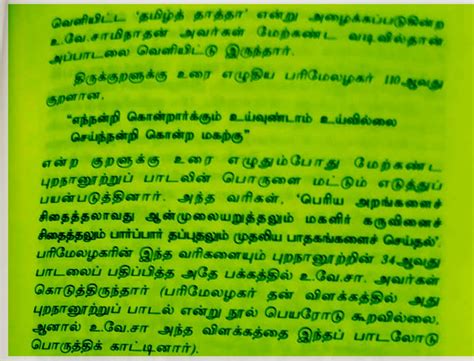 வெளியிட்ட 'தமிழ்த் தாத்தா' என்று அழைக்கப்படுகின்ற
உ.வே.சாமிநாதன் அவர்கள் மேற்கண்ட வடிவில்தான்
அப்பாடலை வெளியிட்டு இருந்தார்.
திருக்குறளுக்கு உரை எழுதிய பரிமேலழகர் 110ஆவது
குறளான,
"எந்நன்றி கொன்றார்க்கும் உய்வுண்டாம் உய்வில்லை
செய்ந்நன்றி கொன்ற மகற்கு"
என்ற குறளுக்கு உரை எழுதும்போது மேற்கண்ட
புறநானூற்றுப் பாடலின் பொருளை மட்டும் எடுத்துப்
பயன்படுத்தினார். அந்த வரிகள், 'பெரிய அறங்களைச்
சிதைத்தலாவது ஆன்முலையறுத்தலும் மகளிர் கருவினைச்
சிதைத்தலும் பார்ப்பார் தப்புதலும் முதலிய பாதகங்களைச் செய்தல்'.
பரிமேலழகரின் இந்த வரிகளையும் புறநானூற்றின் 34ஆவது
பாடலைப் பதிப்பித்த அதே பக்கத்தில் உ.வே.சா. அவர்கள்
கொடுத்திருந்தார் (பரிமேலழகர் தன் விளக்கத்தில் அது
புறநானூற்றுப் பாடல் என்று நூல் பெயரோடு கூறவில்லை.
ஆனால் உ.வே.சா அந்த விளக்கத்தை இந்தப் பாடலோடு
பொருத்திக் காட்டினார்).